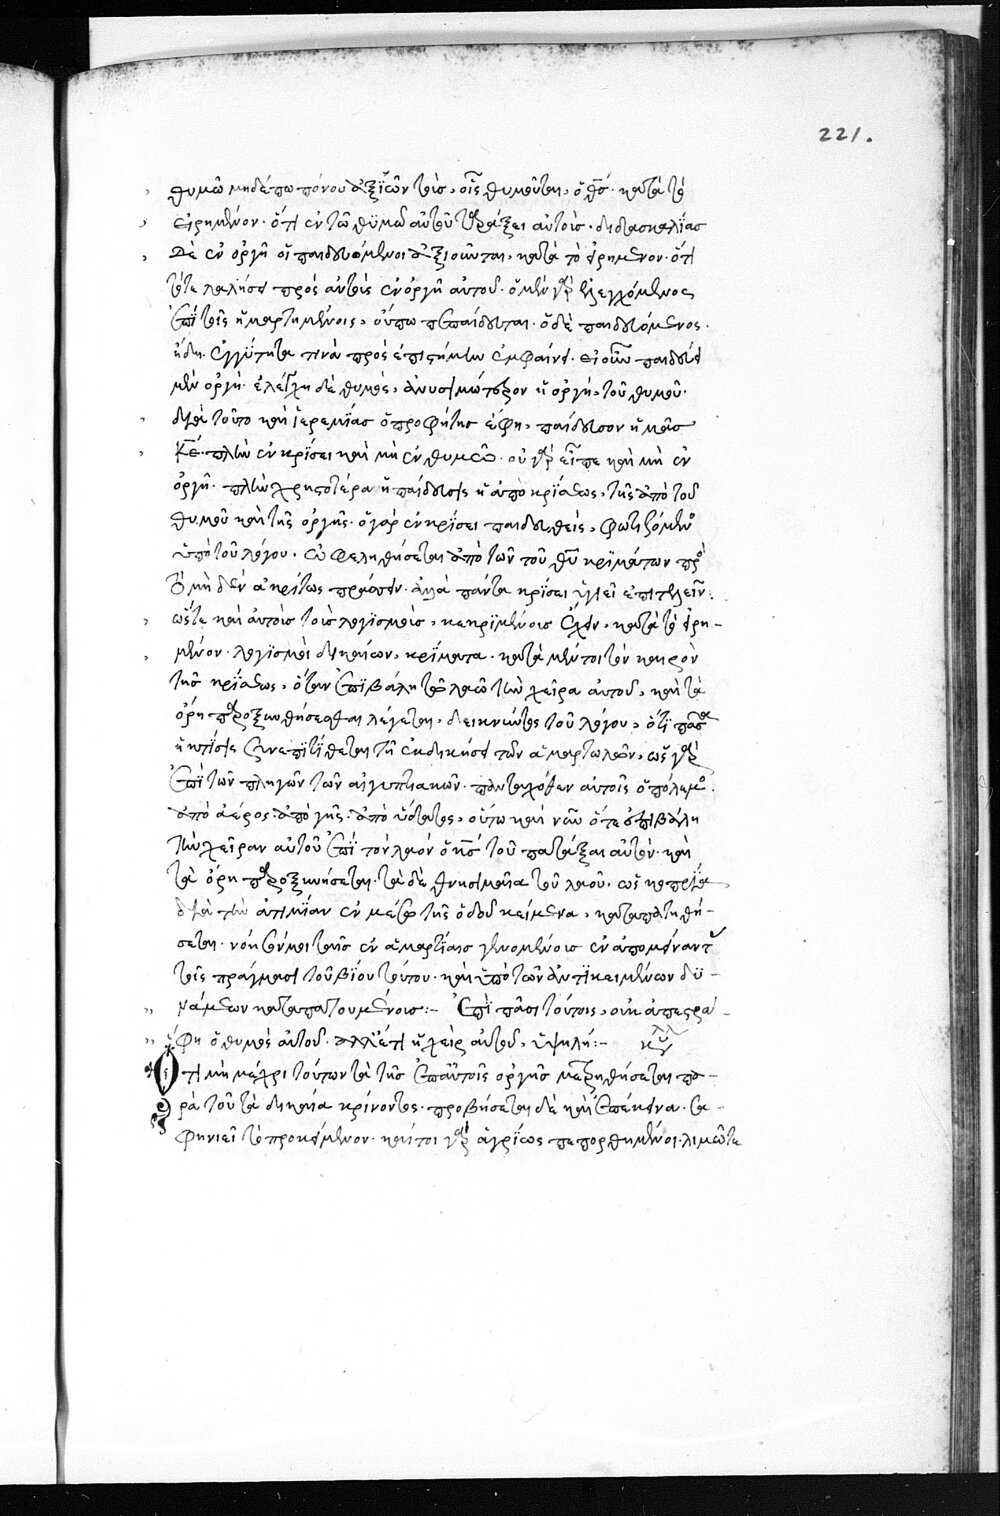 221.
θυμῶ μηδέπω πόνου ἀξιῶν τοῖς, οἷς θυμοῦται, ὁ θς. κατὰ τὸ
εἰρημένον. ὅτι ἐν τῶ θυμῶ αὐτοῦ ταράξει αὐτοὺς. διδασκαλίας
δὲ ἐν ὀργῆ οἱ παιδευόμενοι ἀξιοῦνται, κατὰ τὸ εἰρημένον. ὅτι
τότε λαλήσει πρὸς αὐτοὺς ἐν ὀργῆ αὐτοῦ. ὁ μὲν γὰρ ἐλεγχόμενος
ἐπὶ τοῖς ἡμαρτημένοις, οὔπω πεπαίδευται. ὁ δὲ παιδευόμενος.
ἤδη. ἐγγύτητα τινὰ πρὸς ἐπιστήμην ἐμφαίνει. εἰ οὖν παιδεύει
μὲν ὀργὴ. ἐλέγχει δὲ θυμὸς, ἀνυσιμώτερον ἡ ὀργὴ, τοῦ θυμοῦ.
διὰ τοῦτο καὶ ἱερεμίας ὁ προφήτης ἔφη, παίδευσον ἡμᾶς
κε. πλὴν ἐν κρίσει καὶ μὴ ἐν θυμῶ. οὐ γὰρ εἶπε καὶ μὴ ἐν
ὀργῆ. πλὴν χρηστοτέρα ἡ παίδευσις ἡ ἀπὸ κρίσεως, τῆς ἀπὸ τοῦ
θυμοῦ καὶ τῆς ὀργῆς. ὁ γὰρ ἐν κρίσει παιδευθεὶς, φωτιζόμενος
ὑπὸ τοῦ λόγου. ὠφεληθήσεται ἀπὸ τῶν τοῦ θυ κριμάτων πρὸς
τὸ μηδὲν ἀκρίτως πράσσειν. ἀλλὰ πάντα κρίσει ὑγιεῖ ἐπιτελεῖν:
ὥστε καὶ αὐτοῖς τοῖς λογισμοῖς, κεκριμένοις ἔχειν, κατὰ τὸ εἰρη-
μένον. λογισμοὶ δικαίων, κρίματα. κατὰ μέντοι τὸν καιρὸν
τῆς κρίσεως, ὅταν ἐπιβάλη τῶ λαῶ τὴν χεῖρα αὐτοῦ, καὶ τὰ
ὄρη παροξυνθήσεσθαι λέγεται, δεικνύντος τοῦ λόγου, ὅτι πᾶσα
ἡ κτίσις συνεπιτίθεται τῆ ἐκδικήσει τῶν ἁμαρτωλῶν, ὡς γὰρ
ἐπὶ τῶν πληγῶν τῶν αἰγυπτιακῶν. πανταχόθεν αὐτοῖς ὁ πόλεμος.
ἀπὸ ἀέρος. ἀπὸ γῆς. ἀπὸ ὕδατος, οὕτω καὶ νῦν ὅτε ἐπιβάλη
τὴν χεῖραν αὐτοῦ ἐπὶ τὸν λαὸν ὁ κς τοῦ πατάξαι αὐτόν. καὶ
τὰ ὄρη παροξυνήσεται. τὰ δὲ θνησιμαῖα τοῦ λαοῦ. ὡς κοπρία,
διὰ τὴν ἀτιμίαν ἐν μέσω τῆς ὁδοῦ κείμενα, καταπατηθή-
σεται. νόει σύμοι τοὺς ἐν ἁμαρτίαις γενομένοις ἐναπομείναντας
τοῖς πράγμασι τοῦ βίου τούτου. καὶ ὑπὸ τῶν ἀντικειμένων δυ-
νάμεων καταπατουμένοις:- Ἐπὶ πᾶσι τούτοις, οὐκ ἀπεστρά-
φη ὁ θυμὸς αὐτοῦ. ἀλλ᾽ ἔτι ἡ χεὶρ αὐτοῦ, ὑψηλή:-
Ὅτι μὴ μέχρι τούτων τὰ τῆς ἐπ᾽ αὐτοῖς ὀργῆς μετρηθήσεται πα-
ρὰ τοῦ τὰ δίκαια κρίνοντος. προβήσεται δὲ καὶ ἐπέκεινα. σα-
φηνιεῖ τὸ προκείμενον. καίτοι γὰρ ἀγρίως πεπορθημένοι. λιμῶ τε